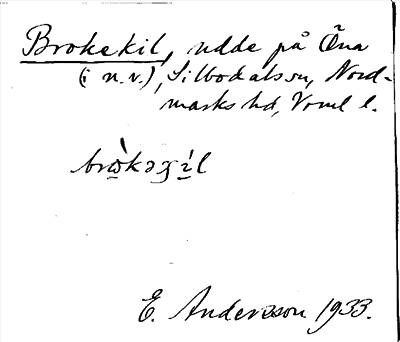 Brokekil, udde på Õna
(i n.v.), Silbodals sn, Nord-
marks hd, Vrml l.
E. Andersson 1933.